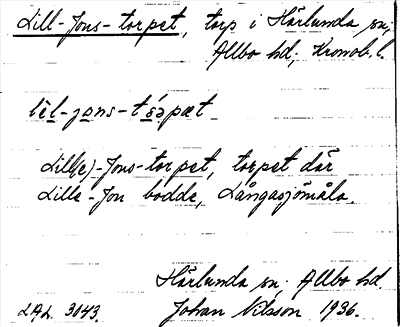 Lill-Jons-torpet, torp i Härlunda sn,
Allbo hd, Kronob. l.
lèl-jons-tɔ́rpæt
Lill(e)-Jons-torpet, torpet där
Lille-Jon bodde, Långasjömåla.
Härlunda sn, Allbo hd.
LAL. 3043. Johan Nilsson 1936.